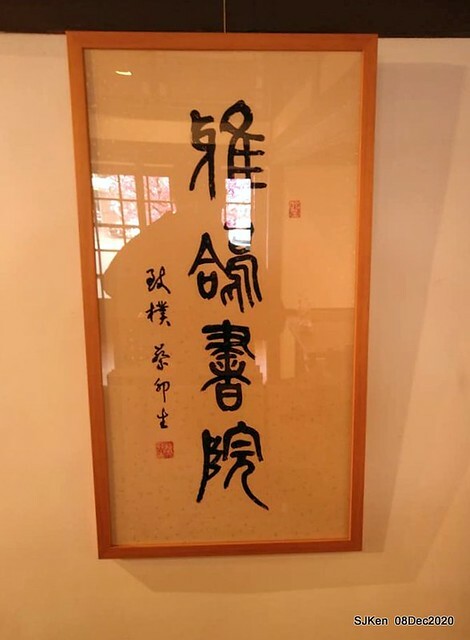 雅鴿書院
致樸 蔡卯生
SJKen 08Dec2020